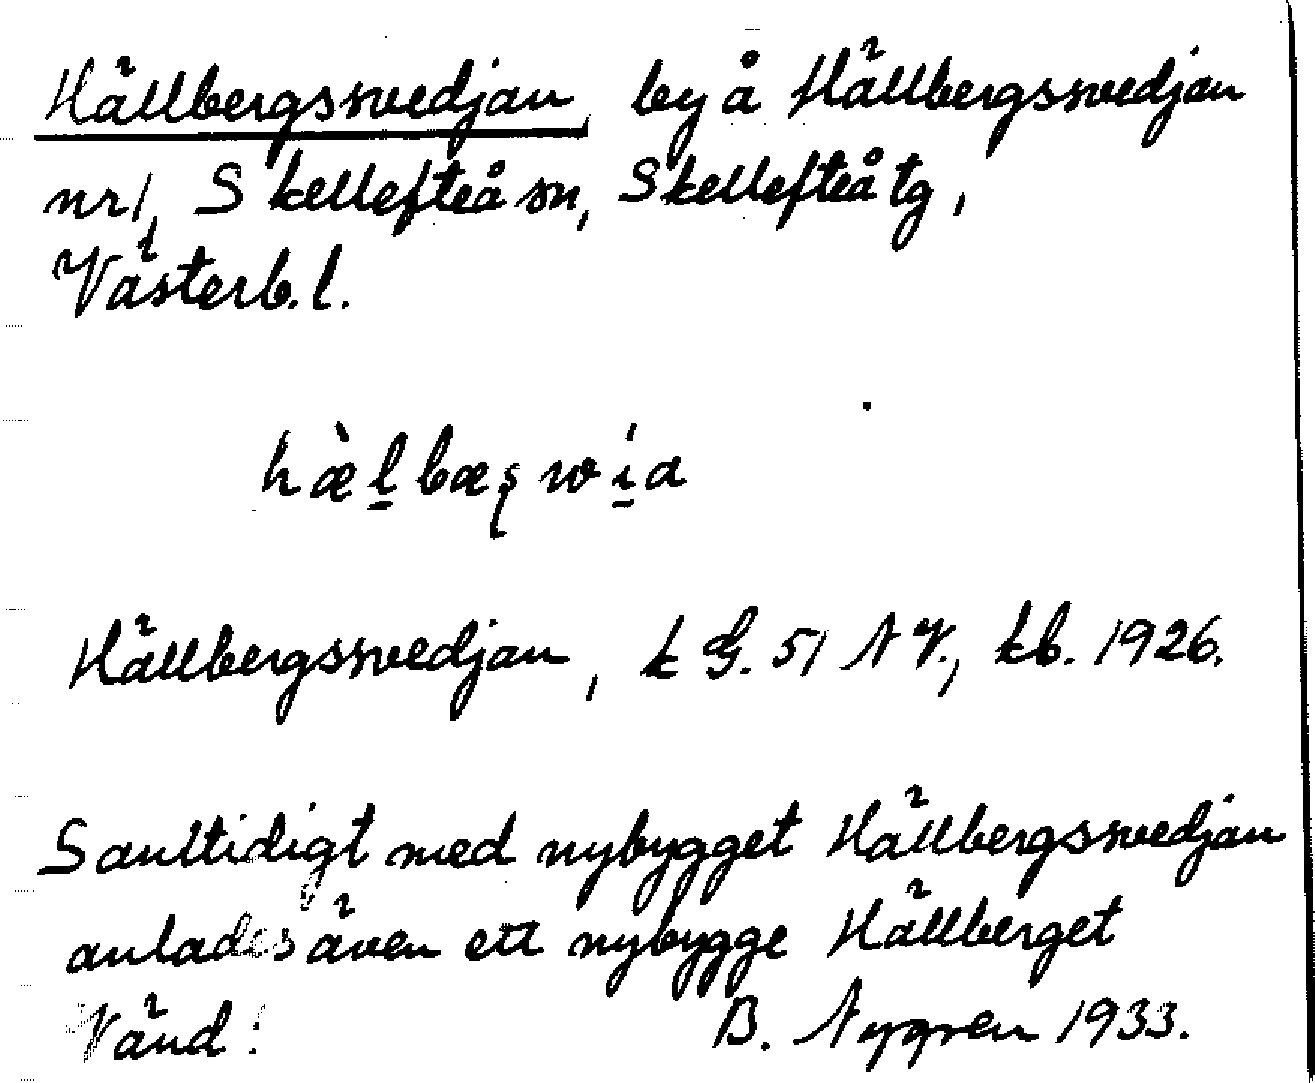 Hällbergssvedjan, by å Hällbergssvedjan
nr 1, Skellefteå sn, Skellefteå tg,
Västerb. l.
hæ̀l̠bæʂwí̠a
Hällbergssvedjan, k G. 51 NV., kb. 1926.
Samtidigt med nybygget Hällbergssvedjan
anlades även ett nybygge Hällberget
Vänd! B. Nygren 1933.